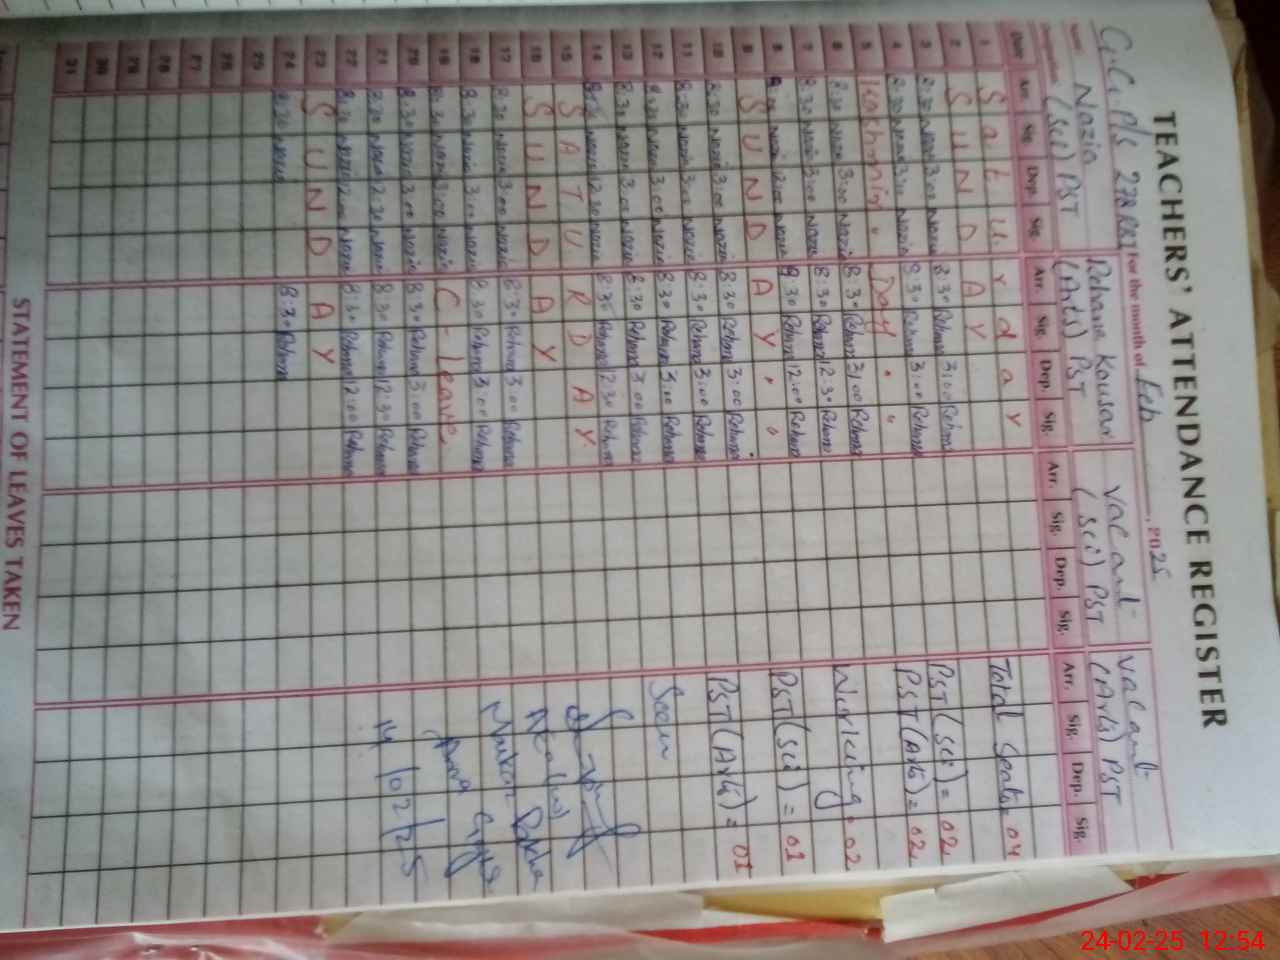 TEACHERS' ATTENDANCE REGISTER
G.G. P/S 272 RB I For the month of Feb, 2025
Name Nazia Rehana Kousar Vacant Vacant
Designation (Sci) PST (Arts) PST (Sci) PST (Arts) PST
Date Arr. Sig. Dep. Sig. Arr. Sig. Dep. Sig. Arr. Sig. Dep. Sig. Arr. Sig. Dep. Sig.
1 S a t u r d a y Total Seats = 04
2 S U N D A Y PST (Sci) = 02
3 8:30 Nazia 3:00 Nazia 8:30 Rehana 3:00 Rehana PST (Arts) = 02
4 8:30 Nazia 3:00 Nazia 8:30 Rehana 3:00 Rehana
5 Kashmir Day
6 8:30 Nazia 3:00 Nazia 8:30 Rehana 3:00 Rehana Working = 02
7 8:30 Nazia 3:00 Nazia 8:30 Rehana 12:30 Rehana
8 Nazia 12:00 Nazia 8:30 Rehana 12:00 Rehana PST (Sci) = 01
9 S U N D A Y
10 8:30 Nazia 3:00 Nazia 8:30 Rehana 3:00 Rehana PST (Arts) = 01
11 8:30 Nazia 3:00 Nazia 8:30 Rehana 3:00 Rehana
12 8:30 Nazia 3:00 Nazia 8:30 Rehana 3:00 Rehana Seen
13 8:30 Nazia 3:00 Nazia 8:30 Rehana 3:00 Rehana
14 8:30 Nazia 12:30 Nazia 8:30 Rehana 12:30 Rehana
15 S A T U R D A Y
16 S U N D A Y
17 8:30 Nazia 3:00 Nazia 8:30 Rehana 3:00 Rehana
18 8:30 Nazia 3:00 Nazia 8:30 Rehana 3:00 Rehana
19 8:30 Nazia 3:00 Nazia C - Leave
20 8:30 Nazia 3:00 Nazia 8:30 Rehana 3:00 Rehana
21 8:30 Nazia 12:30 Nazia 8:30 Rehana 12:30 Rehana 14/02/25
22 8:30 Nazia 12:00 Nazia 8:30 Rehana 12:00 Rehana
23 S U N D A Y
24 8:30 Nazia 8:30 Rehana
25
26
27
28
29
30
31
STATEMENT OF LEAVES TAKEN
24-02-25 12:54